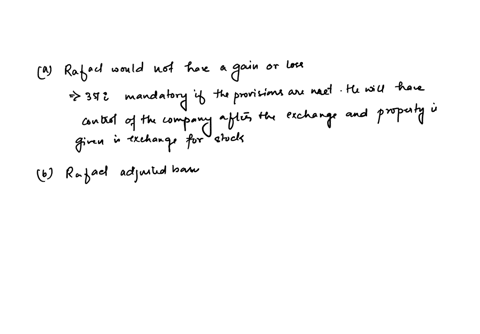 (a) Rafael would not have a gain or loss
⇒ 351 mandatory if the provisions are met. He will have
control of the company after the exchange and property is
given in exchange for stock
(b) Rafael adjusted basis